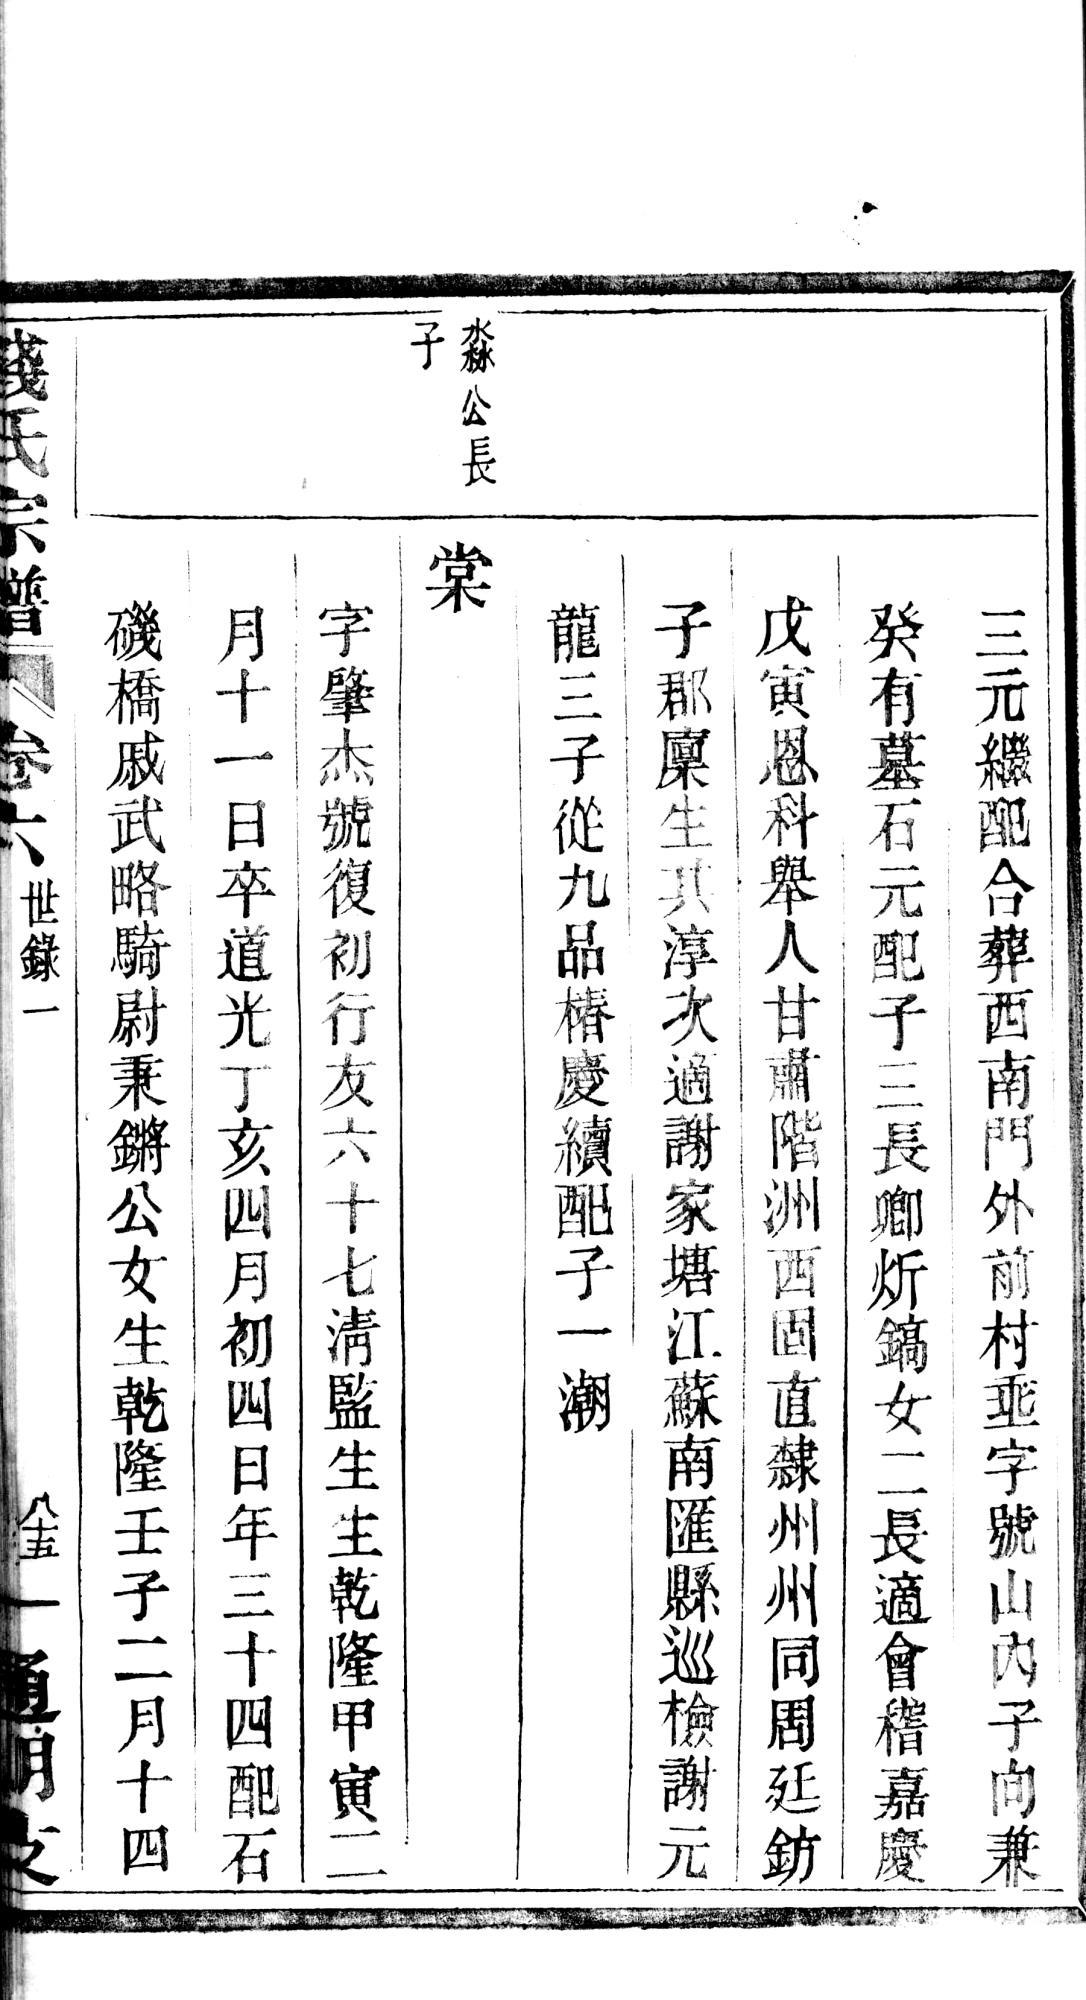 三元繼配合葬西南門外前村亟字號山內子向兼
癸有墓石元配子三長卿炘鎬女二長適會稽嘉慶
戊寅恩科舉人甘肅階洲西固直隸州州同周延鈁
子郡廩生其淳次適謝家塘江蘇南匯縣巡檢謝元
龍三子從九品椿慶續配子一潮
淼公長
子
棠
字肇杰號復初行友六十七清監生生乾隆甲寅二
月十一日卒道光丁亥四月初四日年三十四配石
磯橋戚武略騎尉秉鏘公女生乾隆壬子二月十四
錢氏宗譜
卷六
世錄一
八十五
通明支